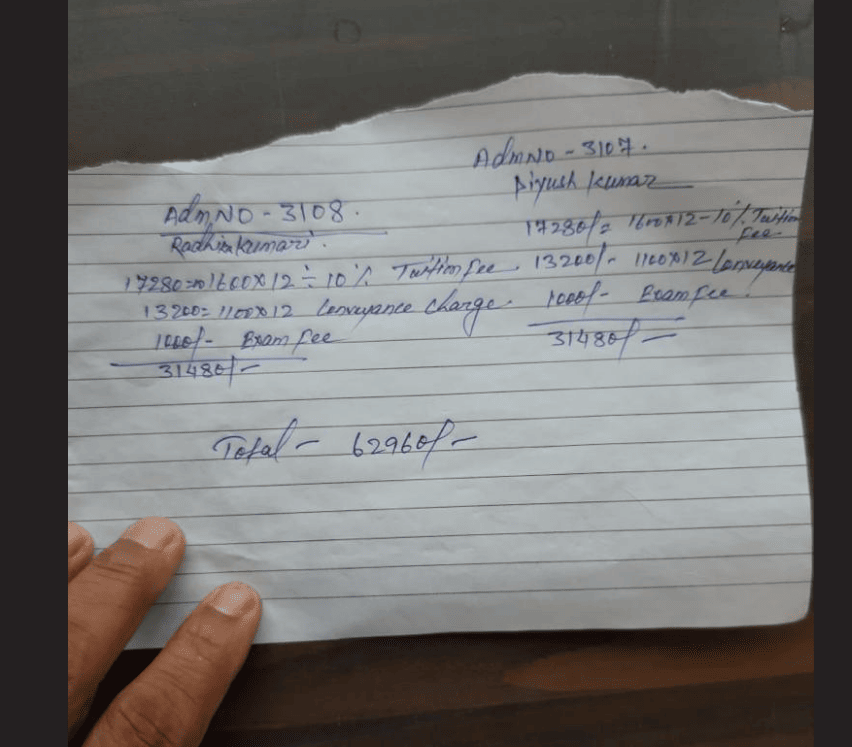 Adm NO - 3108.
Radhika kumari.
17280=00 1600x12 ÷ 10% Tuition fee
13200= 1100x12 Conveyance charge.
1000/- Exam fee
31480/-
Adm NO - 3107.
Piyush kumar
17280/= 1600x12-10% Tuition
fee
13200/- 1100x12 Conveyance
1000/- Exam fee.
31480/-
Total - 62960/-